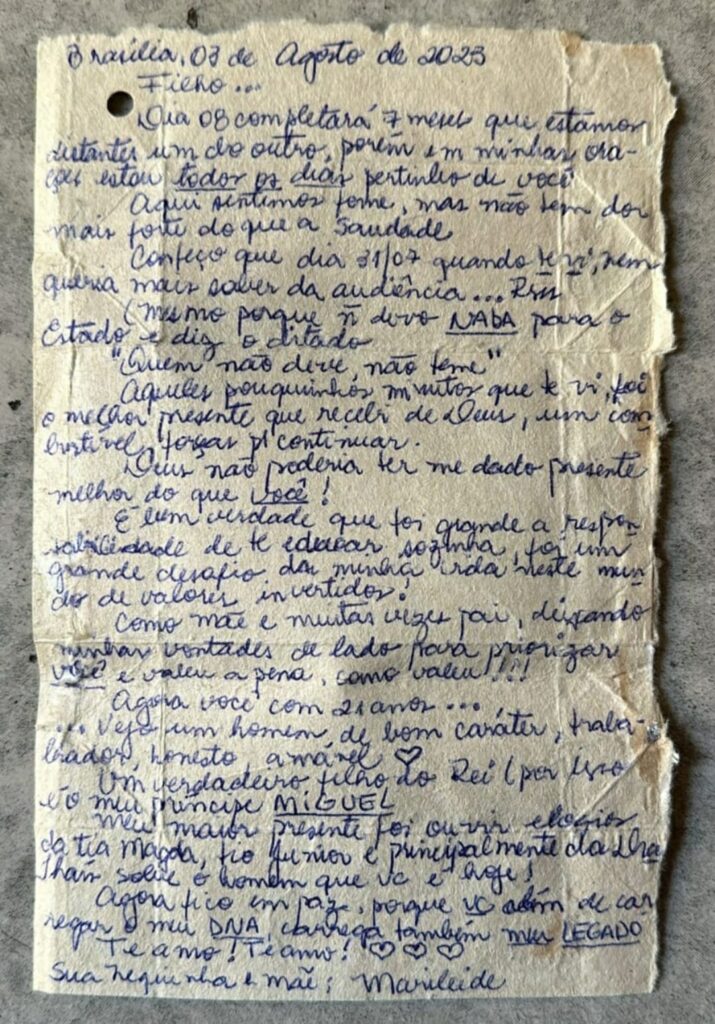 Brasília, 03 de Agosto de 2023
Filho...
Dia 08 completará 7 meses que estamos
distantes um do outro, porém em minhas ora-
ções estou todos os dias pertinho de você
Aqui sentimos fome, mas não tem dor
mais forte do que a Saudade
Confeço que dia 31/07 quando te vi, nem
queria mais saber da audiência... Rsrs
(Mesmo porque ñ devo NADA para o
Estado e diz o ditado
"Quem não deve, não teme"
Aqueles pouquinhos minutos que te vi, foi
o melhor presente que recebi de Deus, um com
bustível, forças p/ continuar.
Deus não poderia ter me dado presente
melhor do que você!
É bem verdade que foi grande a respon
sabilidade de te educar sozinha, foi um
grande desafio da minha vida neste mun
do de valores invertidos!
Como mãe e muitas vezes pai, deixando
minhas vontades de lado para priorizar
você e valeu a pena, como valeu!!!
Agora você com 21 anos...
... Vejo um homem de bom caráter, traba-
lhador, honesto, amável ♡
Um verdadeiro filho do Rei (por isso
é o meu príncipe MIGUEL
Meu maior presente foi ouvir elogios
da tia Magda, tio Junior e principalmente da Dra
Thais sobre o homem que vc é hoje!
Agora fico em paz, porque vc além de car
regar o meu DNA, carrega também meu LEGADO
Te amo! Te amo! ♡ ♡ ♡
Sua neguinha e mãe: Marileide